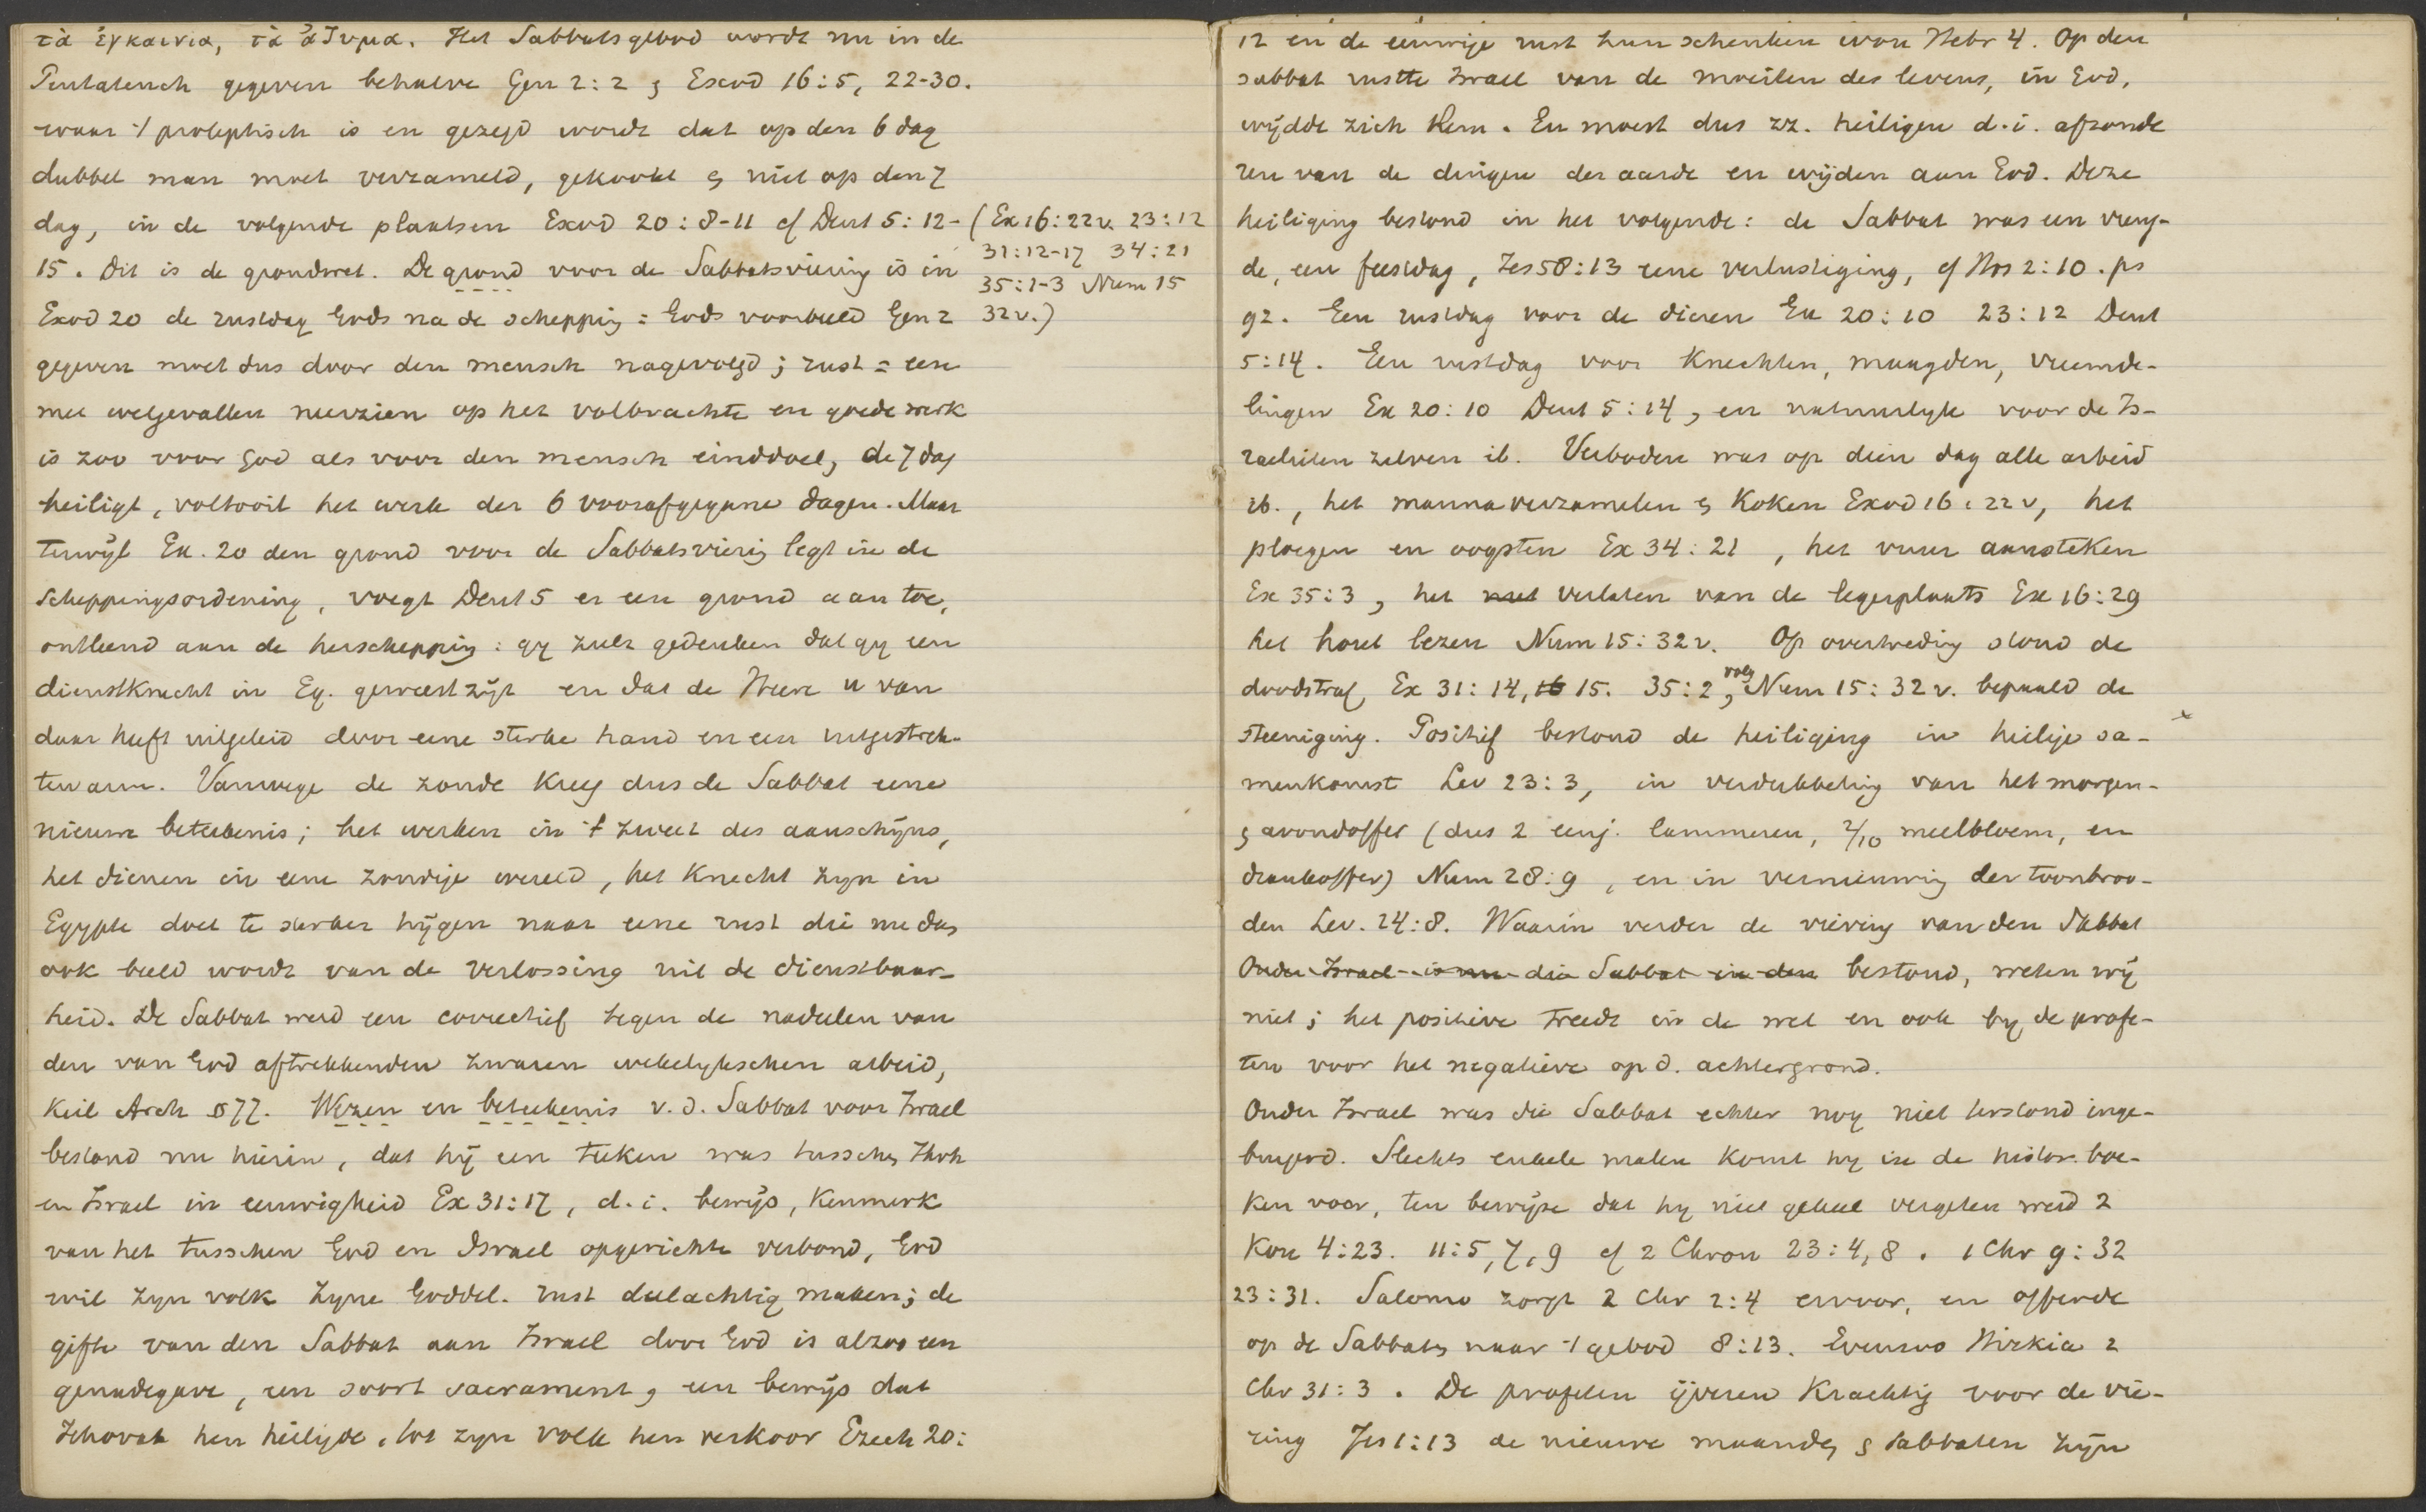 τὰ ἐγκαινια, τὰ ἀζυμα. Het Sabbatsgebod wordt nu in de
Pentateuch gegeven behalve Gen 2:2 & Exod 16:5, 22-30.
waar 't proleptisch is en gezegd wordt dat op den 6 dag
dubbel man moet verzameld, gekookt & niet op den 7
dag, in de volgende plaatsen Exod 20:8-11 cf Deut 5:12-
15. Dit is de grondwet. De grond voor de Sabbatsviering is in
Exod 20 de rustdag Gods na de schepping = Gods voorbeeld Gen 2
gegeven moet dus door den mensch nagevolgd; rust = een
met welgevallen neerzien op het volbrachte en goede werk
is zoo voor God als voor den mensch einddoel, de 7 dag
heiligt, voltooit het werk der 6 voorafgegane dagen. Maar
terwijl Ex. 20 den grond voor de Sabbatsviering legt in de
scheppingsordening, voegt Deut 5 er een grond aan toe,
ontleend aan de herschepping: gy zult gedenken dat gy een
dienstknecht in Eg. geweest zijt en dat de Heere u van
daar heeft uitgeleid door eene sterke hand en een uitgestrek-
ten arm. Vanwege de zonde kreeg dus de Sabbat eene
nieuwe beteekenis; het werken in 't zweet des aanschijns,
het dienen in eene zondige wereld, het knecht zyn in
Egypte doet te sterker hijgen naar eene rust die nu dus
ook beeld wordt van de verlossing uit de dienstbaar-
heid. De Sabbat werd een correctief tegen de nadeelen van
den van God aftrekkenden zwaren wekelykschen arbeid,
Keil Arch §77. Wezen en beteekenis v.d. Sabbat voor Israel
bestond nu hierin, dat hij een teeken was tusschen Jhvh
en Israel in eeuwigheid Ex 31:17, d.i. bewijs, kenmerk
van het tusschen God en Israel opgerichte verbond, God
wil zyn volk zyne Goddel. rust deelachtig maken; de
gifte van den Sabbat aan Israel door God is alzoo een
genadegave, een soort sacrament, een bewijs dat
Jehovah hen heiligde, tot zyn volk hen verkoor Ezech 20:
(Ex 16:22v. 23:12
31:12-17 34:21
35:1-3 Num 15
32v.)
12 en de eeuwige rust hun schenken wou Hebr 4. Op den
sabbat rustte Israel van de moeiten des levens, in God,
wijdde zich Hem. En moest dus zz. heiligen d.i. afzonde
ren van de dingen der aarde en wijden aan God. Deze
heiliging bestond in het volgende: de Sabbat was een vreug-
de, een feestdag, Jes 58:13 eene verlustiging, cf Hos 2:10. ps
92. Een rustdag voor de dieren Ex 20:10 23:12 Deut
5:14. Een rustdag voor knechten, maagden, vreemde-
lingen Ex 20:10 Deut 5:14, en natuurlyk voor de Is-
raelieten zelven ib. Verboden was op dien dag alle arbeid
ib., het manna verzamelen & koken Exod 16:22v, het
ploegen en oogsten Ex 34:21, het vuur aansteken
Ex 35:3, het met verlaten van de legerplaats Ex 16:29
het hout lezen Num 15:32v. Op overtreding stond de
doodstraf, Ex 31:14, 16 15. 35:2, volg Num 15:32v. bepaald de
steeniging. Positief bestond de heiliging in heilige sa-
menkomst Lev 23:3, in verdubbeling van het morgen-
& avondoffer (dus 2 eenj. lammeren, 2/10 meelbloem, en
drankoffer) Num 28:9, en in vernieuwing der toonbroo-
den Lev. 24:8. Waarin verder de viering van den Sabbat
Onder Israel is nu die Sabbat in den bestond, weten wij
niet; het positieve treedt in de wet en ook by de profe-
ten voor het negatieve op d. achtergrond.
Onder Israel was die Sabbat echter nog niet terstond inge-
burgerd. Slechts enkele malen komt hy in de histor. boe-
ken voor, ten bewijze dat hy niet geheel vergeten werd 2
Kon 4:23. 11:5,7,9 cf 2 Chron 23:4,8. 1 Chr 9:32
23:31. Salomo zorgt 2 Chr 2:4 ervoor, en offerde
op de Sabbats naar 't gebod 8:13. Evenzoo Hizkia 2
Chr 31:3. De profeten ijveren krachtig voor de vie-
ring Jes 1:13 de nieuwe maanden & sabbaten zijn